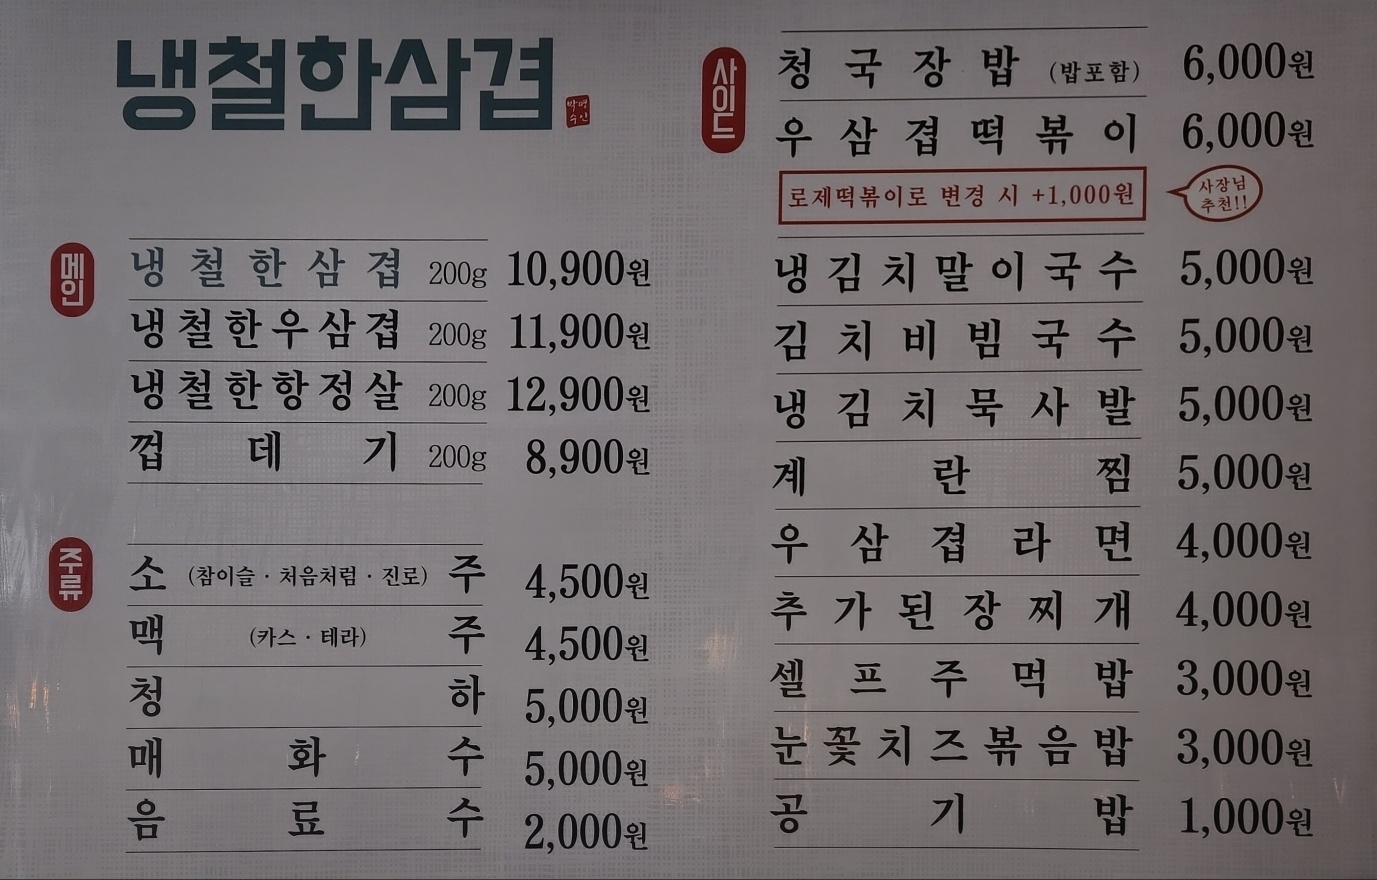 냉철한삼겹
박명
수인
메인
냉철한삼겹 200g 10,900원
냉철한우삼겹 200g 11,900원
냉철한항정살 200g 12,900원
껍데기 200g 8,900원
주류
소주 (참이슬 · 처음처럼 · 진로) 4,500원
맥주 (카스 · 테라) 4,500원
청하 5,000원
매화수 5,000원
음료수 2,000원
사이드
청국장밥 (밥포함) 6,000원
우삼겹떡볶이 6,000원
로제떡볶이로 변경 시 +1,000원
사장님
추천!!
냉김치말이국수 5,000원
김치비빔국수 5,000원
냉김치묵사발 5,000원
계란찜 5,000원
우삼겹라면 4,000원
추가된장찌개 4,000원
셀프주먹밥 3,000원
눈꽃치즈볶음밥 3,000원
공기밥 1,000원